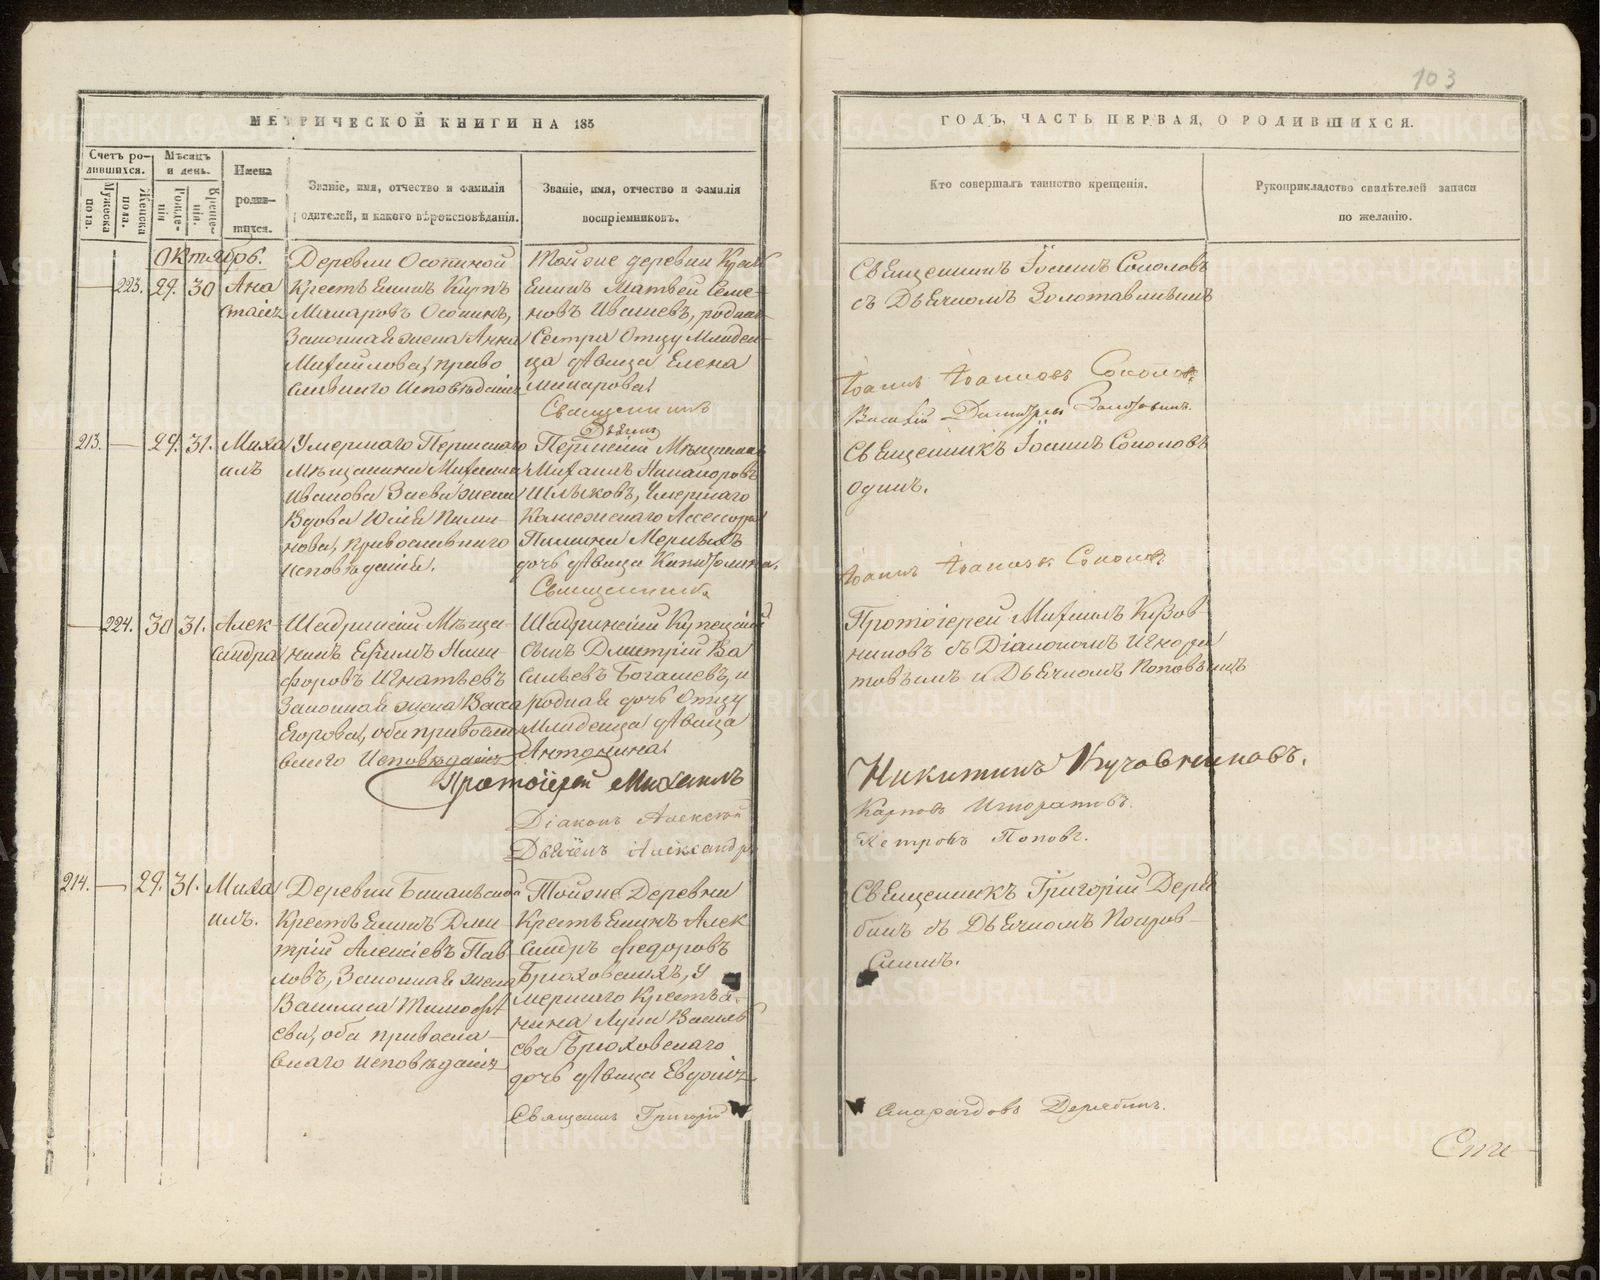 103
МЕТРИЧЕСКОЙ КНИГИ НА 185
ГОДЪ, ЧАСТЬ ПЕРВАЯ, О РОДИВШИХСЯ.
Счетъ ро-
дившихся.
Мужеска
пола.
Женска
пола.
Мѣсяцъ
и день.
Рожде-
нія
Креще-
нія.
Имена
родив-
шихся.
Званіе, имя, отчество и фамилія
родителей, и какого вѣроисповѣданія.
Званіе, имя, отчество и фамилія
воспріемниковъ.
Кто совершалъ таинство крещенія.
Рукоприкладство свидѣтелей записи
по желанію.
Октябрь.
223. 29. 30
Ана
стасія
Деревни Осотиной
Крестьянинъ Карпъ
Макаровъ Осотинъ,
Законная жена Анна
Михайлова, право
славнаго Исповѣданія
Тойже деревни Кресть
янинъ Матвей Семе-
новъ Ивашевъ, родная
Сестра Отцу Младен-
ца дѣвица Елена
Макарова.
Священникъ
Дьячекъ
Священникъ Іоаннъ Соколовъ
съ Дьячкомъ Золотавинымъ
Іоаннъ Іоанновъ Соколовъ
Василій Димитріевъ Золотавинъ.
213. 29. 31.
Миха
илъ
Умершаго Пермскаго
Мѣщанина Михаила
Иванова Заева жена
Вдова Юлія
нова, Православнаго
исповѣданія.
Пермскій Мѣщанинъ
Михаилъ Никаноровъ
Шлыковъ, Умершаго
Колежскаго Ассесора
дочь дѣвица Капитолина.
Священникъ
Священникъ Іоаннъ Соколовъ
одинъ.
Іоаннъ Іоанновъ Соколовъ
224. 30 31.
Алек
сандра
Шадринскій Мѣща-
нинъ Ефимъ Ники-
форовъ Игнатьевъ
Законная жена Васса
Егорова, оба православ
наго Исповѣданія
Шадринскій Купеческій
сынъ Дмитрій Ва
сильевъ Богашевъ, и
родная дочь Отцу
Младенца дѣвица
Антонина.
Протоіерей Михаилъ
Діаконъ Алексѣй
Дьячекъ Александръ
Протоіерей Михаилъ Кузов
никовъ съ Діакономъ Игнора
товымъ и Дьячкомъ Поповымъ
Никитинъ Кузовниковъ.
Карповъ Игноратовъ.
Петровъ Поповъ.
214. 29. 31.
Миха
илъ.
Деревни
Крестьянинъ Дми
трій Алексѣевъ Пав
ловъ, Законная жена
Василиса Тимофѣ
ева, оба правосла
внаго исповѣданія
Тойже Деревни
Крестьянинъ Алек
сандръ Федоровъ
Брюховскихъ, У
мершаго Крестья-
нина Луки Василь
ева Брюховскаго
дочь дѣвица Евдокія
Священникъ Григорій
Священникъ Григорій Деря
бинъ съ Дьячкомъ Покров-
скимъ.
Спиридоновъ Дерябинъ.